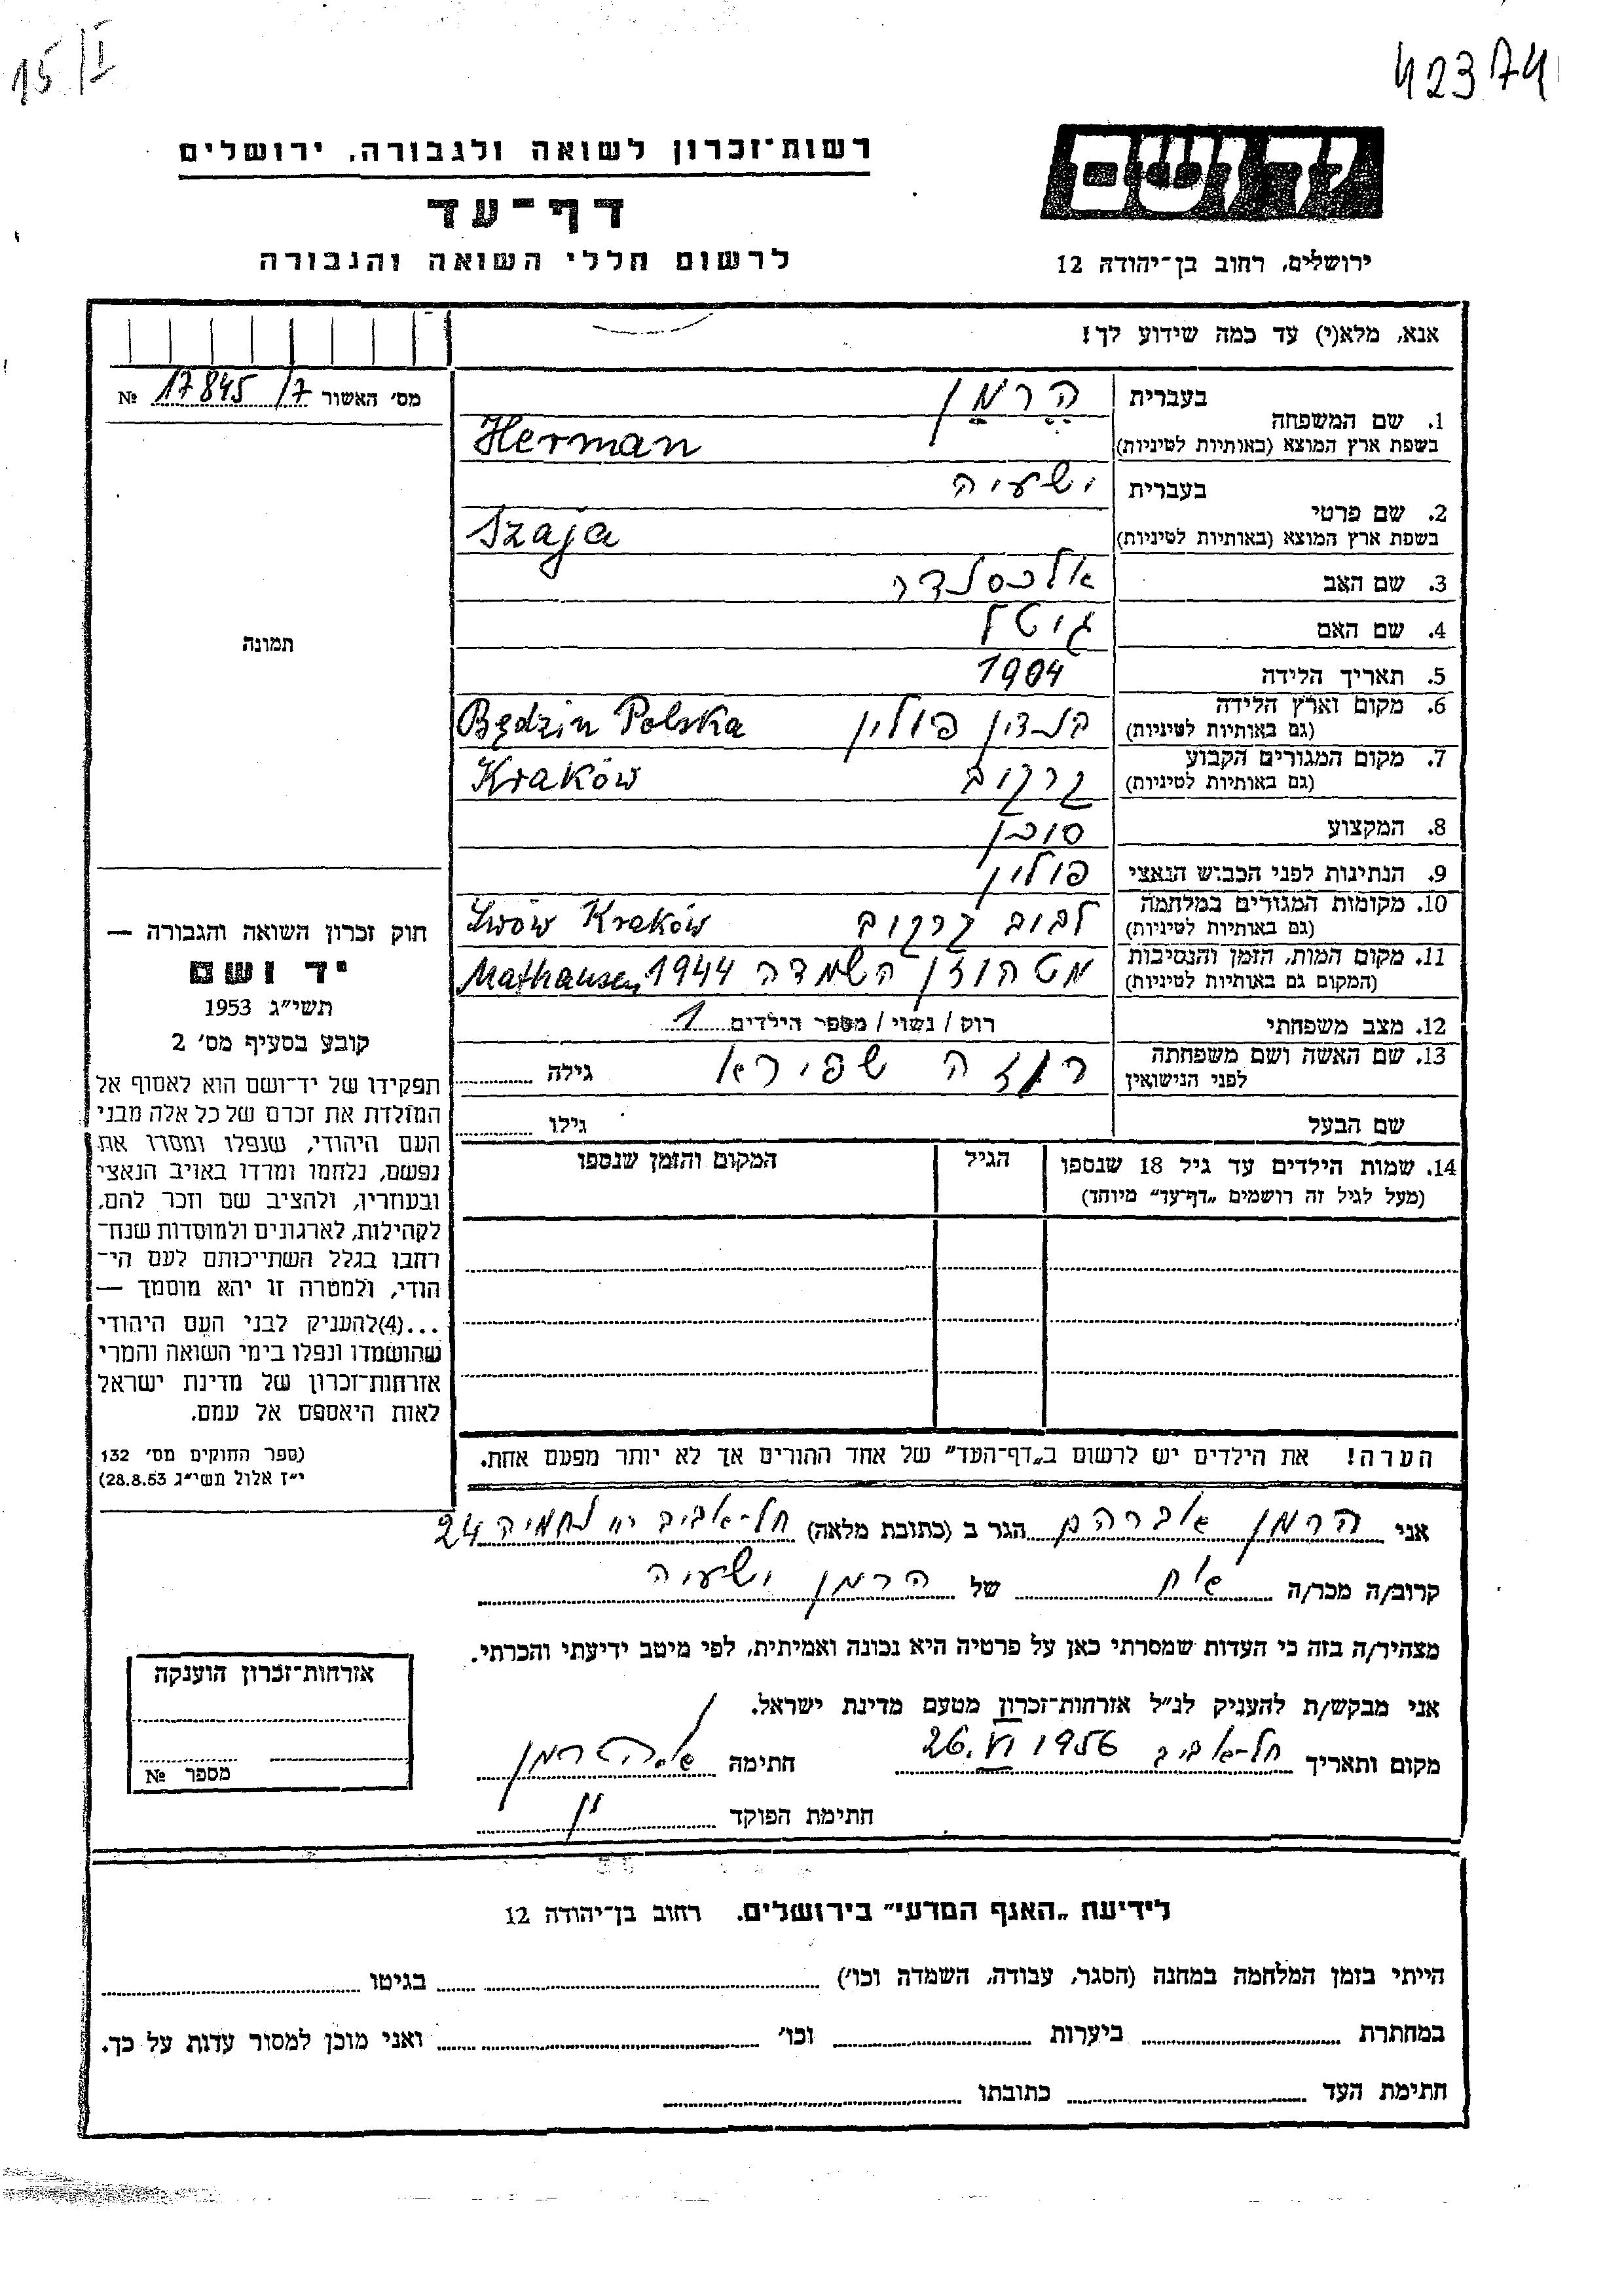 15/I
42374
יד ושם
רשות־זכרון לשואה ולגבורה, ירושלים
דף־עד
לרשום חללי השואה והגבורה
ירושלים, רחוב בן־יהודה 12
אנא, מלא(י) עד כמה שידוע לך!
מס׳ האשור 17845/7 №
תמונה
1. שם המשפחה בעברית הרמן
בשפת ארץ המוצא (באותיות לטיניות) Herman
2. שם פרטי בעברית ישעיה
בשפת ארץ המוצא (באותיות לטיניות) Szaja
3. שם האב אלכסנדר
4. שם האם גיטל
5. תאריך הלידה 1904
6. מקום וארץ הלידה בנדין פולין Będzin Polska
(גם באותיות לטיניות)
7. מקום המגורים הקבוע קרקוב Kraków
(גם באותיות לטיניות)
8. המקצוע סוכן
9. הנתינות לפני הכבוש הנאצי פולין
10. מקומות המגורים במלחמה לבוב קרקוב Lwów Kraków
(גם באותיות לטיניות)
11. מקום המות, הזמן והנסיבות מטהוזן השמדה 1944 Mathausen
(המקום גם באותיות לטיניות)
12. מצב משפחתי רוק / נשוי / מספר הילדים 1
13. שם האשה ושם משפחתה רוזה שפירא גילה
לפני הנישואין
שם הבעל גילו
14. שמות הילדים עד גיל 18 שנספו הגיל המקום והזמן שנספו
(מעל לגיל זה רושמים „דף־עד” מיוחד)
הערה! את הילדים יש לרשום ב„דף־העד” של אחד ההורים אך לא יותר מפעם אחת.
חוק זכרון השואה והגבורה —
יד ושם
תשי״ג 1953
קובע בסעיף מס׳ 2
תפקידו של יד־ושם הוא לאסוף אל
המולדת את זכרם של כל אלה מבני
העם היהודי, שנפלו ומסרו את
נפשם, נלחמו ומרדו באויב הנאצי
ובעוזריו, ולהציב שם וזכר להם,
לקהילות, לארגונים ולמוסדות שנח־
רחבו בגלל השתייכותם לעם הי־
הודי, ולמטרה זו יהא מוסמך —
...(4)להעניק לבני העם היהודי
שהושמדו ונפלו בימי השואה והמרי
אזרחות־זכרון של מדינת ישראל
לאות היאספם אל עמם.
(ספר החוקים מס׳ 132
י״ז אלול תשי״ג 28.8.53)
אני הרמן אברהם הגר ב (כתובת מלאה) תל־אביב נחמיה 24
קרוב/ה מכר/ה אח של הרמן ישעיה
מצהיר/ה בזה כי העדות שמסרתי כאן על פרטיה היא נכונה ואמיתית, לפי מיטב ידיעתי והכרתי.
אני מבקש/ת להעניק לנ״ל אזרחות־זכרון מטעם מדינת ישראל.
מקום ותאריך תל־אביב 26.VI 1956 חתימה א. הרמן
חתימת הפוקד
אזרחות־זכרון הוענקה
מספר №
לידיעת „האגף המדעי” בירושלים. רחוב בן־יהודה 12
הייתי בזמן המלחמה במחנה (הסגר, עבודה, השמדה וכו׳) בגיטו
במחתרת ביערות וכו׳ ואני מוכן למסור עדות על כך.
חתימת העד כתובתו